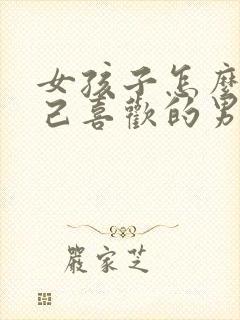 女孩子怎麼
己喜歡的男
嚴家芝